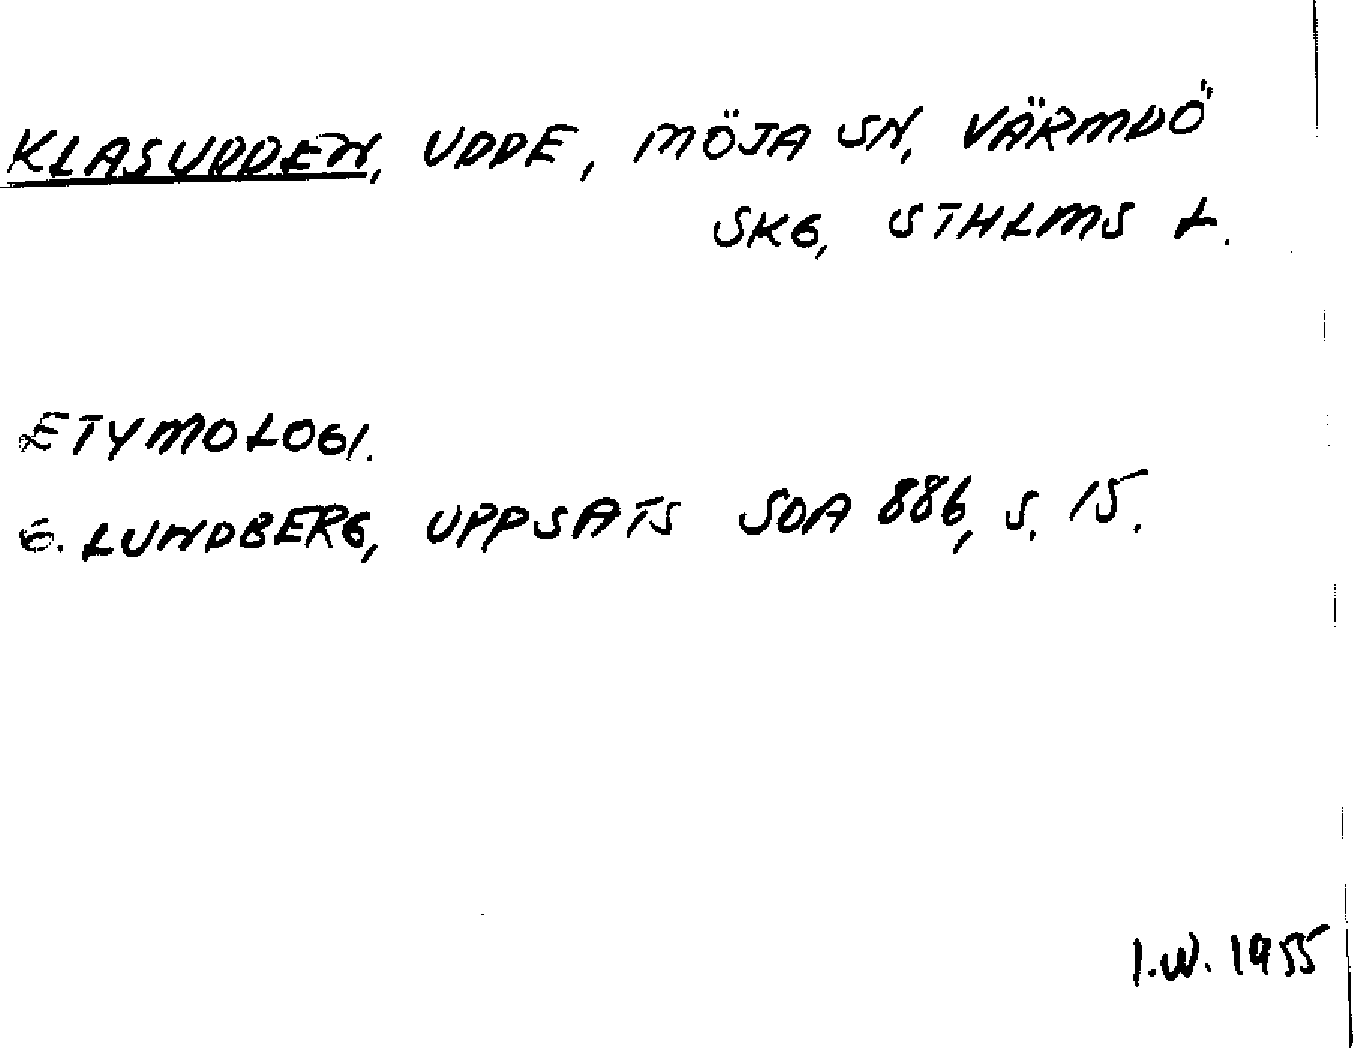 KLASUDDEN, UDDE, MÖJA SN, VÄRMDÖ
SKG, STHLMS L.
ETYMOLOGI.
G. LUNDBERG, UPPSATS SOA 886, S. 15.
I.W. 1955